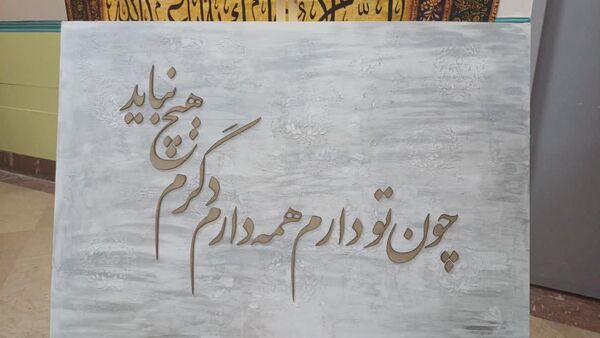 چون تو دارم همه دارم دگرم هیچ نباید